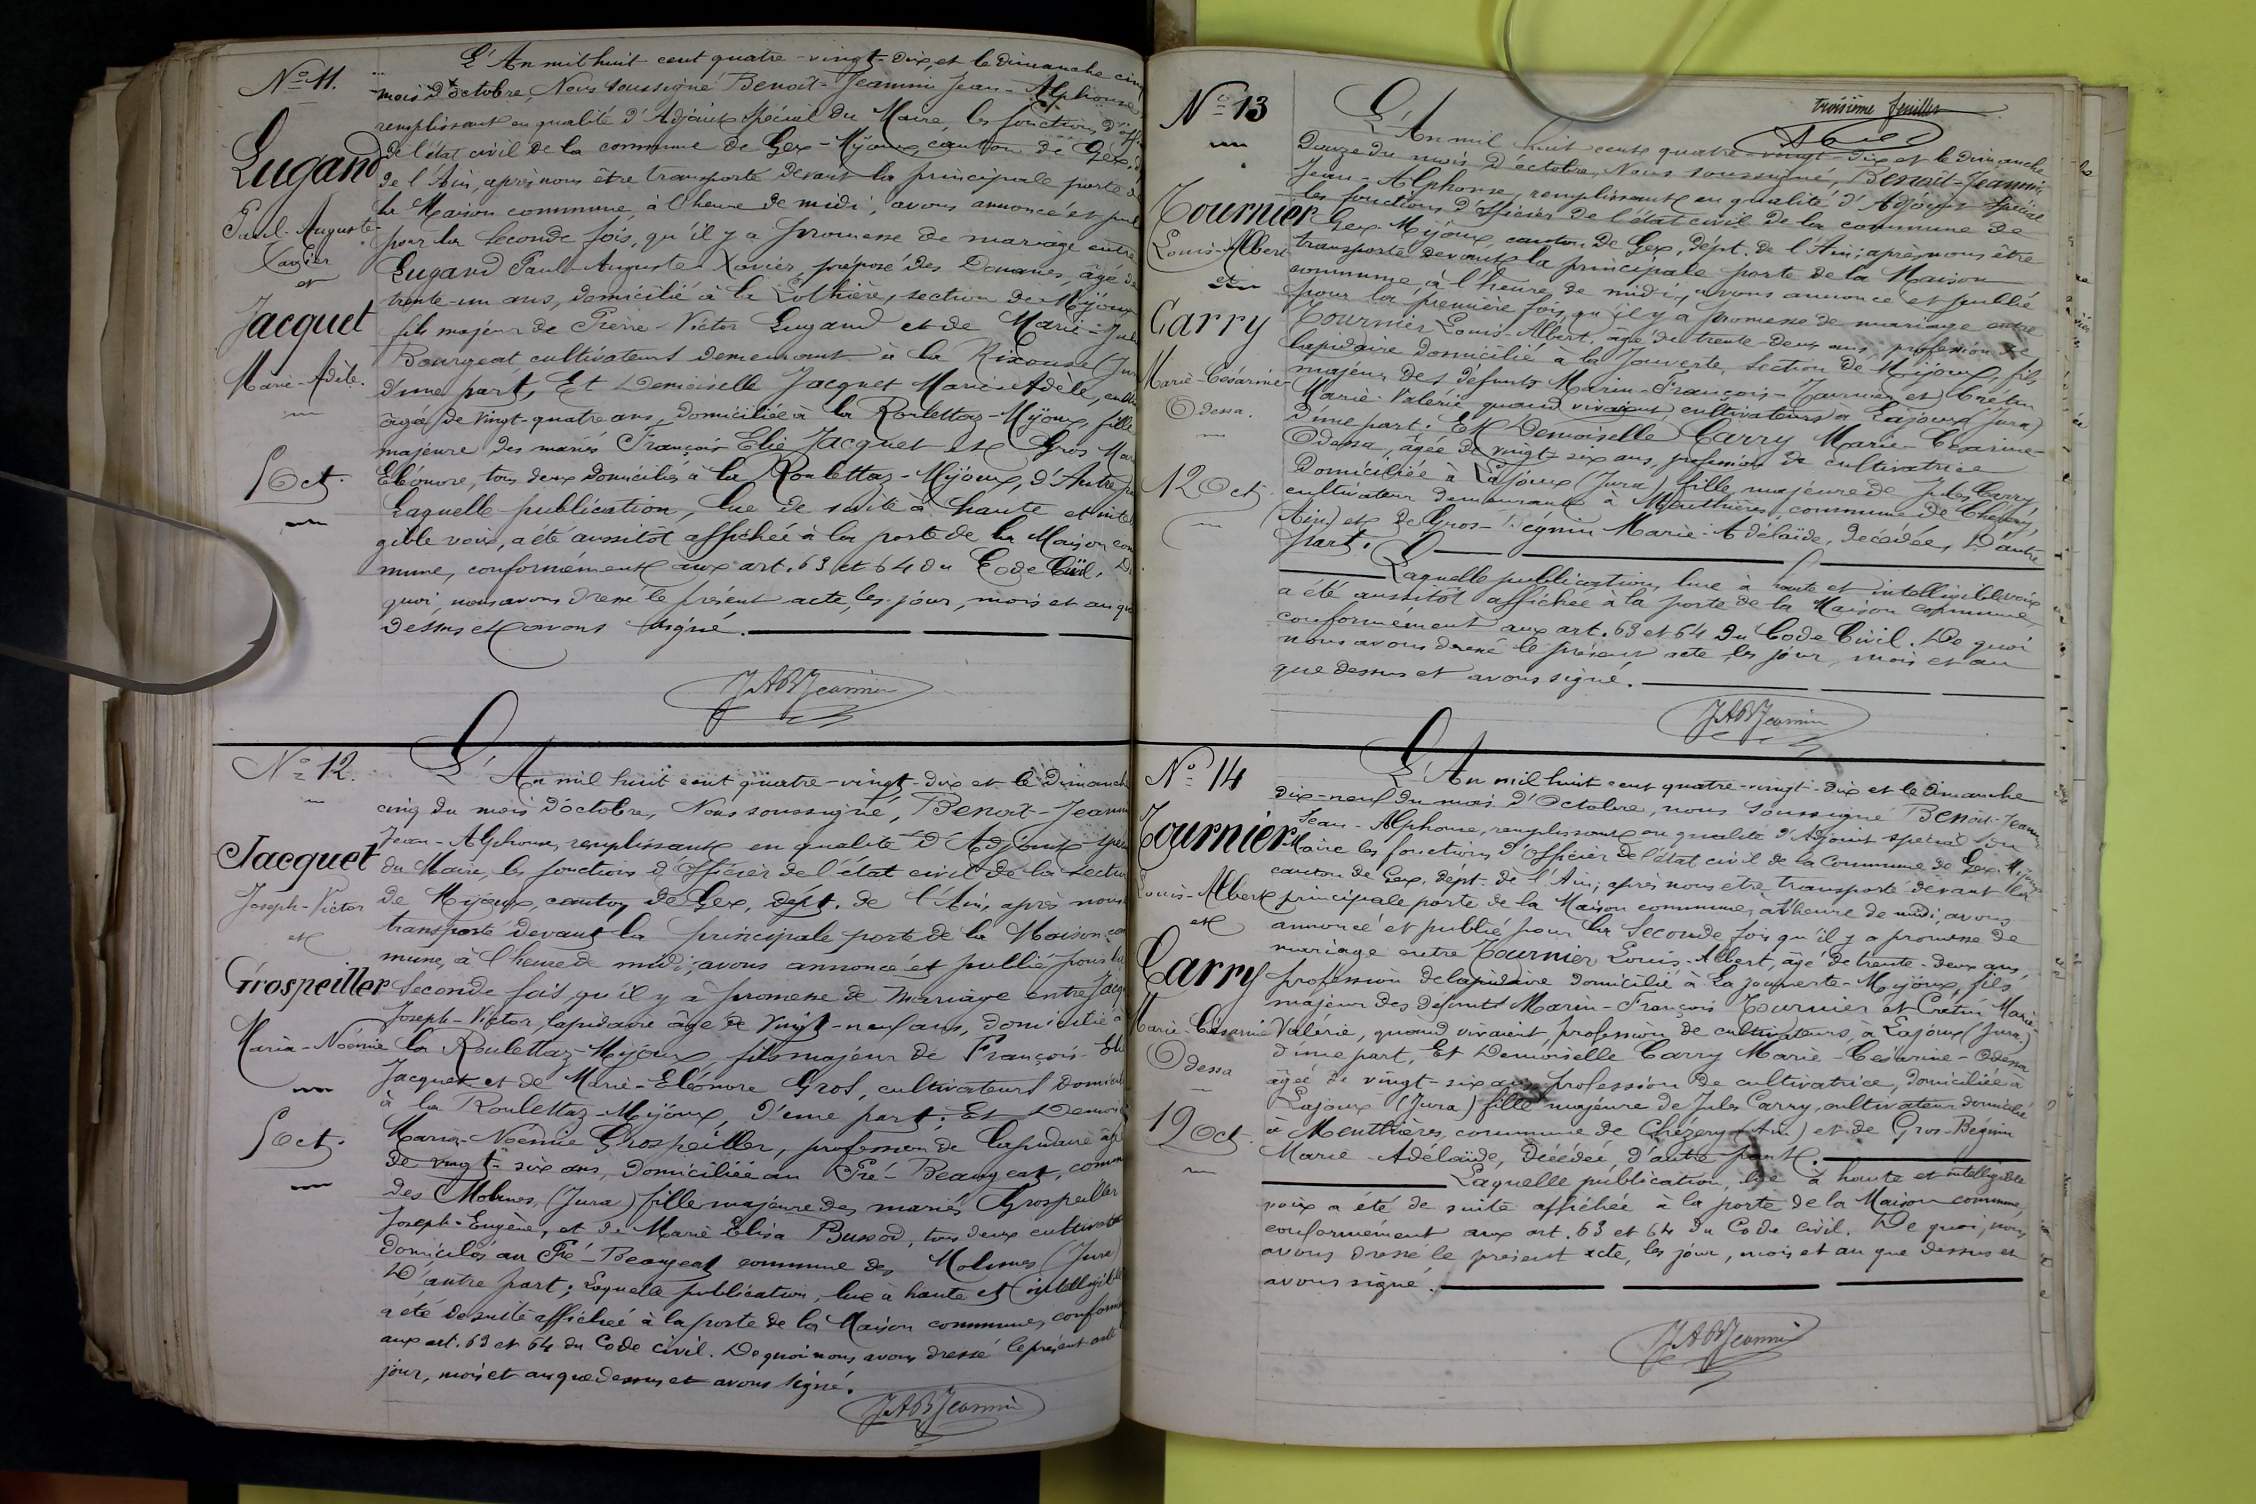 N° 11.
Lugand
Paul-Auguste-
Xavier
et
Jacquet
Marie-Adèle.
5 Oct.
L'An mil huit cent quatre-vingt-dix, et le dimanche cinq
mois d'octobre, Nous soussigné Benoit-Jeannin Jean-Alphonse
remplissant en qualité d'Adjoint spécial du Maire, les fonctions d'
de l'état civil de la commune de Gex-Mijoux, canton de Gex,
de l'Ain, après nous être transporté devant la principale porte de
la Maison commune à l'heure de midi, avons annoncé et publ
pour la seconde fois, qu'il y a promesse de mariage entre
Lugand Paul-Auguste-Xavier, préposé des Douanes, âgé de
trente-un ans, domicilié à la section de Mijoux
fils majeur de Pierre-Victor Lugand et de Marie-
Bourgeat, cultivateurs demeurant à la Rixouse (Jur
d'une part, Et Demoiselle Jacquet Marie-Adèle,
âgée de vingt-quatre ans, domiciliée à la Roulettaz-Mijoux, fille
majeure des mariés François Elie Jacquet et Gros Mar
Eléonore, tous deux domiciliés à la Roulettaz-Mijoux, d'Autre
Laquelle publication, lue de suite à haute et intel
gible voix, a été aussitôt affichée à la porte de la Maison com
mune, conformément aux art. 63 et 64 du Code Civil. De
quoi, nous avons dressé le présent acte, les jour, mois et an que
dessus et avons signé.
JABJeannin
N° 12.
Jacquet
Joseph-Victor
et
Grospeiller
Maria-Noémie
5 Oct.
L'An mil huit cent quatre-vingt-dix et le Dimanche
cinq du mois d'octobre, Nous soussigné, Benoit-Jeannin
Jean-Alphonse, remplissant en qualité d'Adjoint spéc
du Maire, les fonctions d'Officier de l'état civil de la Section
de Mijoux, canton de Gex, dépt. de l'Ain, après nous
transporté devant la principale porte de la Maison com
mune, à l'heure de midi, avons annoncé et publié pour la
seconde fois, qu'il y a promesse de mariage entre Jacq
Joseph-Victor, lapidaire âgé de vingt-neuf ans, domicilié à
la Roulettaz-Mijoux, fils majeur de François-Elie
Jacquet et de Marie-Eléonore Gros, cultivateurs domicil
à la Roulettaz-Mijoux, d'une part; Et Demois
Maria-Noémie Grospeiller, profession de lapidaire âgée
de vingt-six ans, domiciliée au Pré-Beaugeat, comm
des Molunes, (Jura) fille majeure des mariés Grospeiller
Joseph-Eugène, et de Marie Elisa Bussod, tous deux cultivateurs
domiciliés au Pré-Beaugeat commune des Molunes (Jura)
D'autre part; Laquelle publication, lue à haute et intelligible
a été de suite affichée à la porte de la Maison commune, conform
aux art. 63 et 64 du Code civil. De quoi nous avons dressé le présent acte
jour, mois et an que dessus et avons signé.
JABJeannin
troisième feuillet
N° 13
Tournier
Louis-Albert
et
Carry
Marie-Césarine
Odessa.
12 Oct.
L'An mil huit cent quatre-vingt-dix et le dimanche
Douze du mois d'octobre, Nous soussigné, Benoit-Jeannin
Jean-Alphonse, remplissant en qualité d'Adjoint spécial
les fonctions d'officier de l'état civil de la commune de
Gex Mijoux, canton de Gex, dépt. de l'Ain; après nous être
transporté devant la principale porte de la Maison
commune, à l'heure de midi, avons annoncé et publié
pour la première fois, qu'il y a promesse de mariage entre
Tournier Louis-Albert, âgé de trente-deux ans, profession de
lapidaire domicilié à la Jouverte, section de Mijoux, fils
majeur des défunts Marin-François-Tournier et Crétin
Marie-Valérie quand vivaient, cultivateurs à Lajoux (Jura)
d'une part. Et Demoiselle Carry Marie-Césarine-
Odessa, âgée de vingt-six ans, profession de cultivatrice
Domiciliée à Lajoux (Jura) fille majeure de Jules Carry,
cultivateur demeurant à Menthières, commune de Chézery,
(Ain) et de Gros-Bégnin Marie-Adélaïde, décédée, D'autre
part.
Laquelle publication, lue à haute et intelligible voix
a été aussitôt affichée à la porte de la Maison commune,
conformément aux art. 63 et 64 du Code Civil. De quoi
nous avons dressé le présent acte, les jour, mois et an
que dessus et avons signé.
JABJeannin
N° 14
Tournier
Louis-Albert
et
Carry
Marie-Césarine
Odessa
19 Oct.
L'An mil huit cent quatre-vingt-dix et le Dimanche
dix-neuf du mois d'Octobre, nous soussigné Benoit-Jeannin
Jean-Alphonse, remplissant en qualité d'Adjoint spécial du
Maire les fonctions d'Officier de l'état civil de la Commune de Gex-Mijoux
canton de Gex, dépt. de l'Ain; après nous être transporté devant la
principale porte de la Maison commune, à l'heure de midi, avons
annoncé et publié pour la seconde fois qu'il y a promesse de
mariage entre Tournier Louis-Albert, âgé de trente-deux ans,
profession de lapidaire domicilié à La jouverte-Mijoux, fils
majeur des défunts Marin-François Tournier et Crétin Marie-
Valérie, quand vivaient, profession de cultivateurs, à Lajoux (Jura)
d'une part, Et Demoiselle Carry Marie-Césarine-Odessa
âgée de vingt-six ans profession de cultivatrice, domiciliée à
Lajoux (Jura) fille majeure de Jules Carry, cultivateur domicilié
à Menthières, commune de Chézery (Ain) et de Gros-Bégnin
Marie-Adélaïde, décédée, d'autre part.
Laquelle publication, lue à haute et intelligible
voix a été de suite affichée à la porte de la Maison commune,
conformément aux art. 63 et 64 du Code civil. De quoi, nous
avons dressé le présent acte, les jour, mois et an que dessus et
avons signé.
JABJeannin